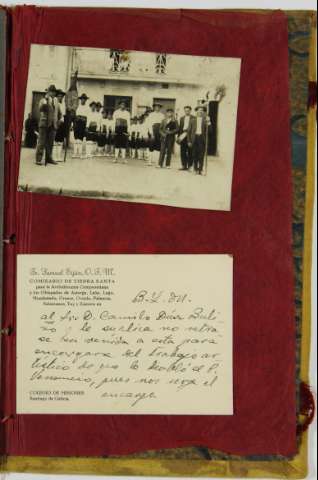 Fr. Samuel Eiján, O. F. M.
COMISARIO DE TIERRA SANTA
para la Archidiócesis Compostelana
y los Obispados de Astorga, León, Lugo,
Mondoñedo, Orense, Oviedo, Palencia,
Salamanca, Tuy y Zamora
B. L. M.
al Sr. D. Camilo Díaz Bali
ño y le suplica no retra
se su venida a esta para
encargarse del trabajo ar
tístico de que le habló el P.
pues nos urge el
encargo
COLEGIO DE MISIONES
Santiago de Galicia.